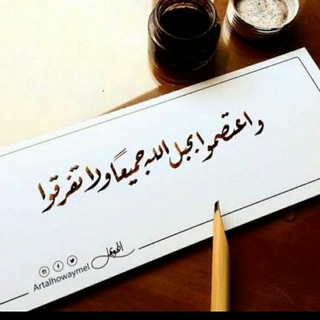 واعتصموا بحبل الله جميعًا ولا تفرقوا
الهويمل
Artalhowaymel